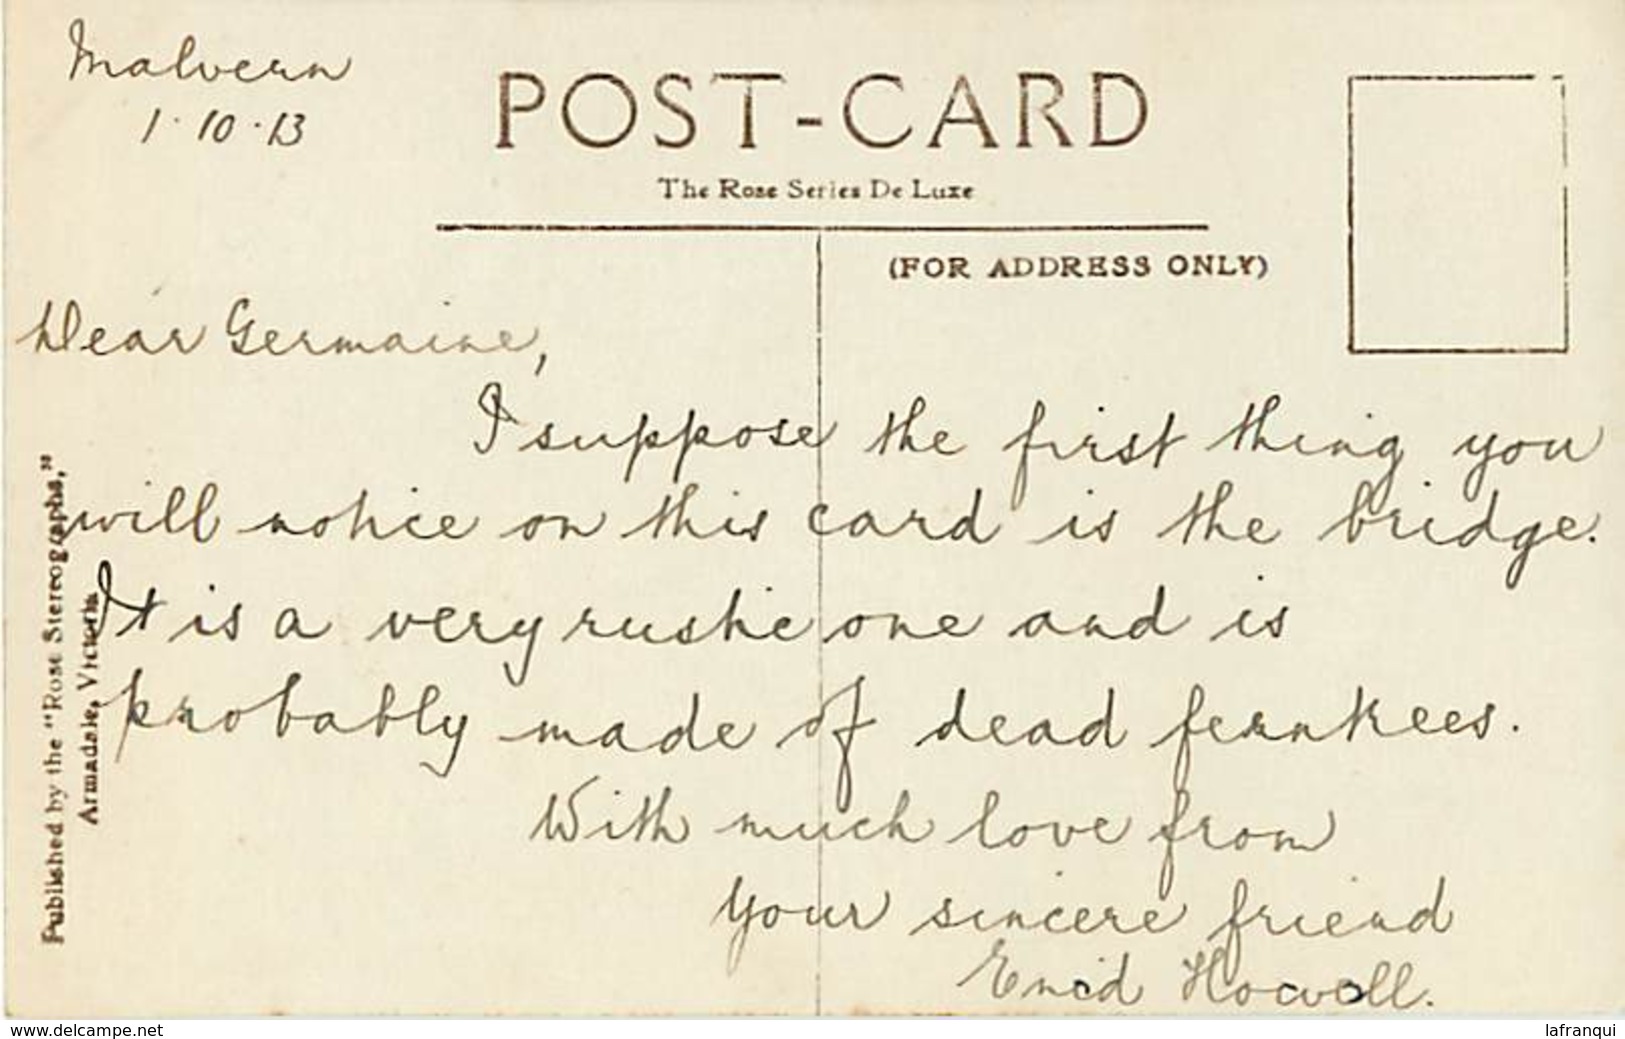 Malvern
1·10·13
POST-CARD
The Rose Series De Luxe
(FOR ADDRESS ONLY)
Dear Germaine,
I suppose the first thing you
will notice on this card is the bridge.
It is a very rustic one and is
probably made of dead ferntrees.
With much love from
your sincere friend
Enid Howell.
Published by the "Rose Stereographs,"
Armadale, Victoria
www.delcampe.net
lafranqui